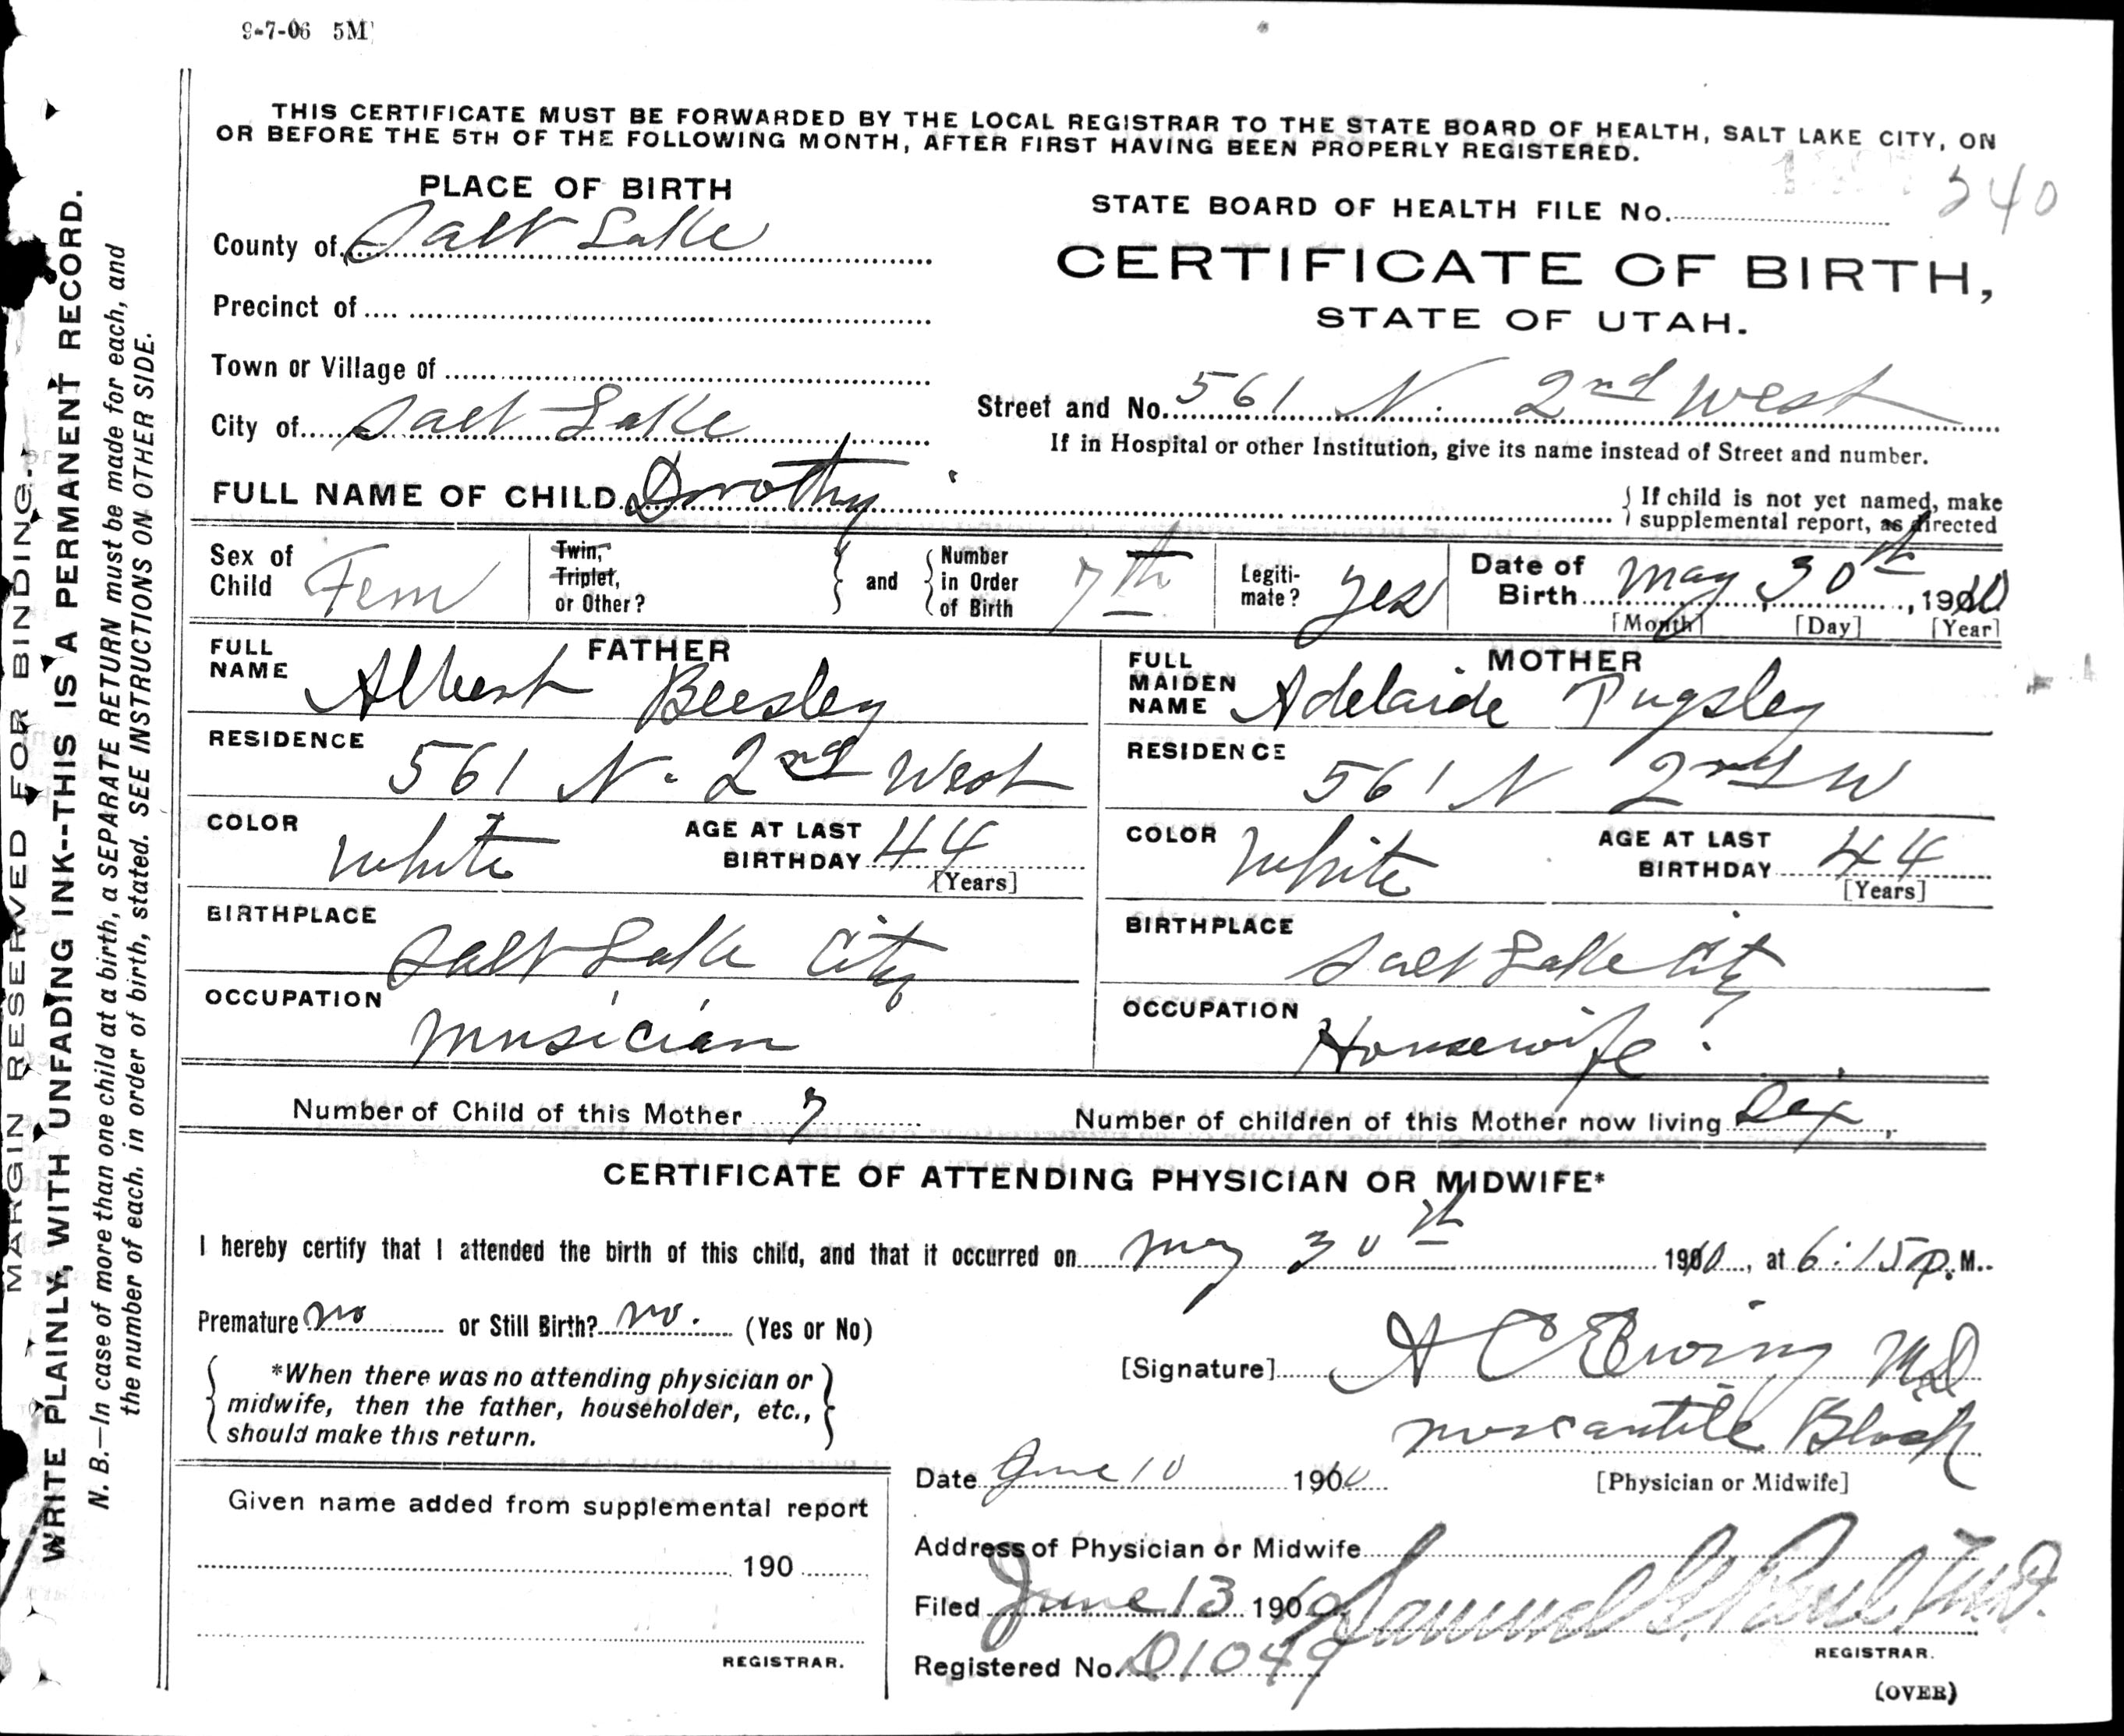 9-7-06 5M
THIS CERTIFICATE MUST BE FORWARDED BY THE LOCAL REGISTRAR TO THE STATE BOARD OF HEALTH, SALT LAKE CITY, ON
OR BEFORE THE 5TH OF THE FOLLOWING MONTH, AFTER FIRST HAVING BEEN PROPERLY REGISTERED.
MARGIN RESERVED FOR BINDING.
WRITE PLAINLY, WITH UNFADING INK--THIS IS A PERMANENT RECORD.
N. B.—In case of more than one child at a birth, a SEPARATE RETURN must be made for each, and
the number of each, in order of birth, stated. SEE INSTRUCTIONS ON OTHER SIDE.
PLACE OF BIRTH
County of Salt Lake
Precinct of
Town or Village of
City of Salt Lake
STATE BOARD OF HEALTH FILE No. 340
CERTIFICATE OF BIRTH,
STATE OF UTAH.
Street and No. 561 N. 2nd West
If in Hospital or other Institution, give its name instead of Street and number.
FULL NAME OF CHILD Dorothy
If child is not yet named, make
supplemental report, as directed
Sex of
Child Fem
Twin,
Triplet,
or Other?
and
Number
in Order
of Birth 7th
Legiti-
mate? yes
Date of
Birth May 30th, 1910
[Month] [Day] [Year]
FATHER
FULL
NAME Albert Beesley
RESIDENCE 561 N. 2nd West
COLOR White
AGE AT LAST
BIRTHDAY 44
[Years]
BIRTHPLACE Salt Lake City
OCCUPATION Musician
MOTHER
FULL
MAIDEN
NAME Adelaide Pugsley
RESIDENCE 561 N 2nd W
COLOR White
AGE AT LAST
BIRTHDAY 44
[Years]
BIRTHPLACE Salt Lake City
OCCUPATION Housewife
Number of Child of this Mother 7
Number of children of this Mother now living
CERTIFICATE OF ATTENDING PHYSICIAN OR MIDWIFE*
I hereby certify that I attended the birth of this child, and that it occurred on May 30th 1910, at 6:15 P. M.
Premature no or Still Birth? no. (Yes or No)
*When there was no attending physician or
midwife, then the father, householder, etc.,
should make this return.
[Signature] A C Ewing MD
Mercantile Block
[Physician or Midwife]
Date June 10 1910
Address of Physician or Midwife
Filed June 13 1910 Samuel G. Paul, M.D.
REGISTRAR.
Registered No. D1049
(OVER)
Given name added from supplemental report
190
REGISTRAR.